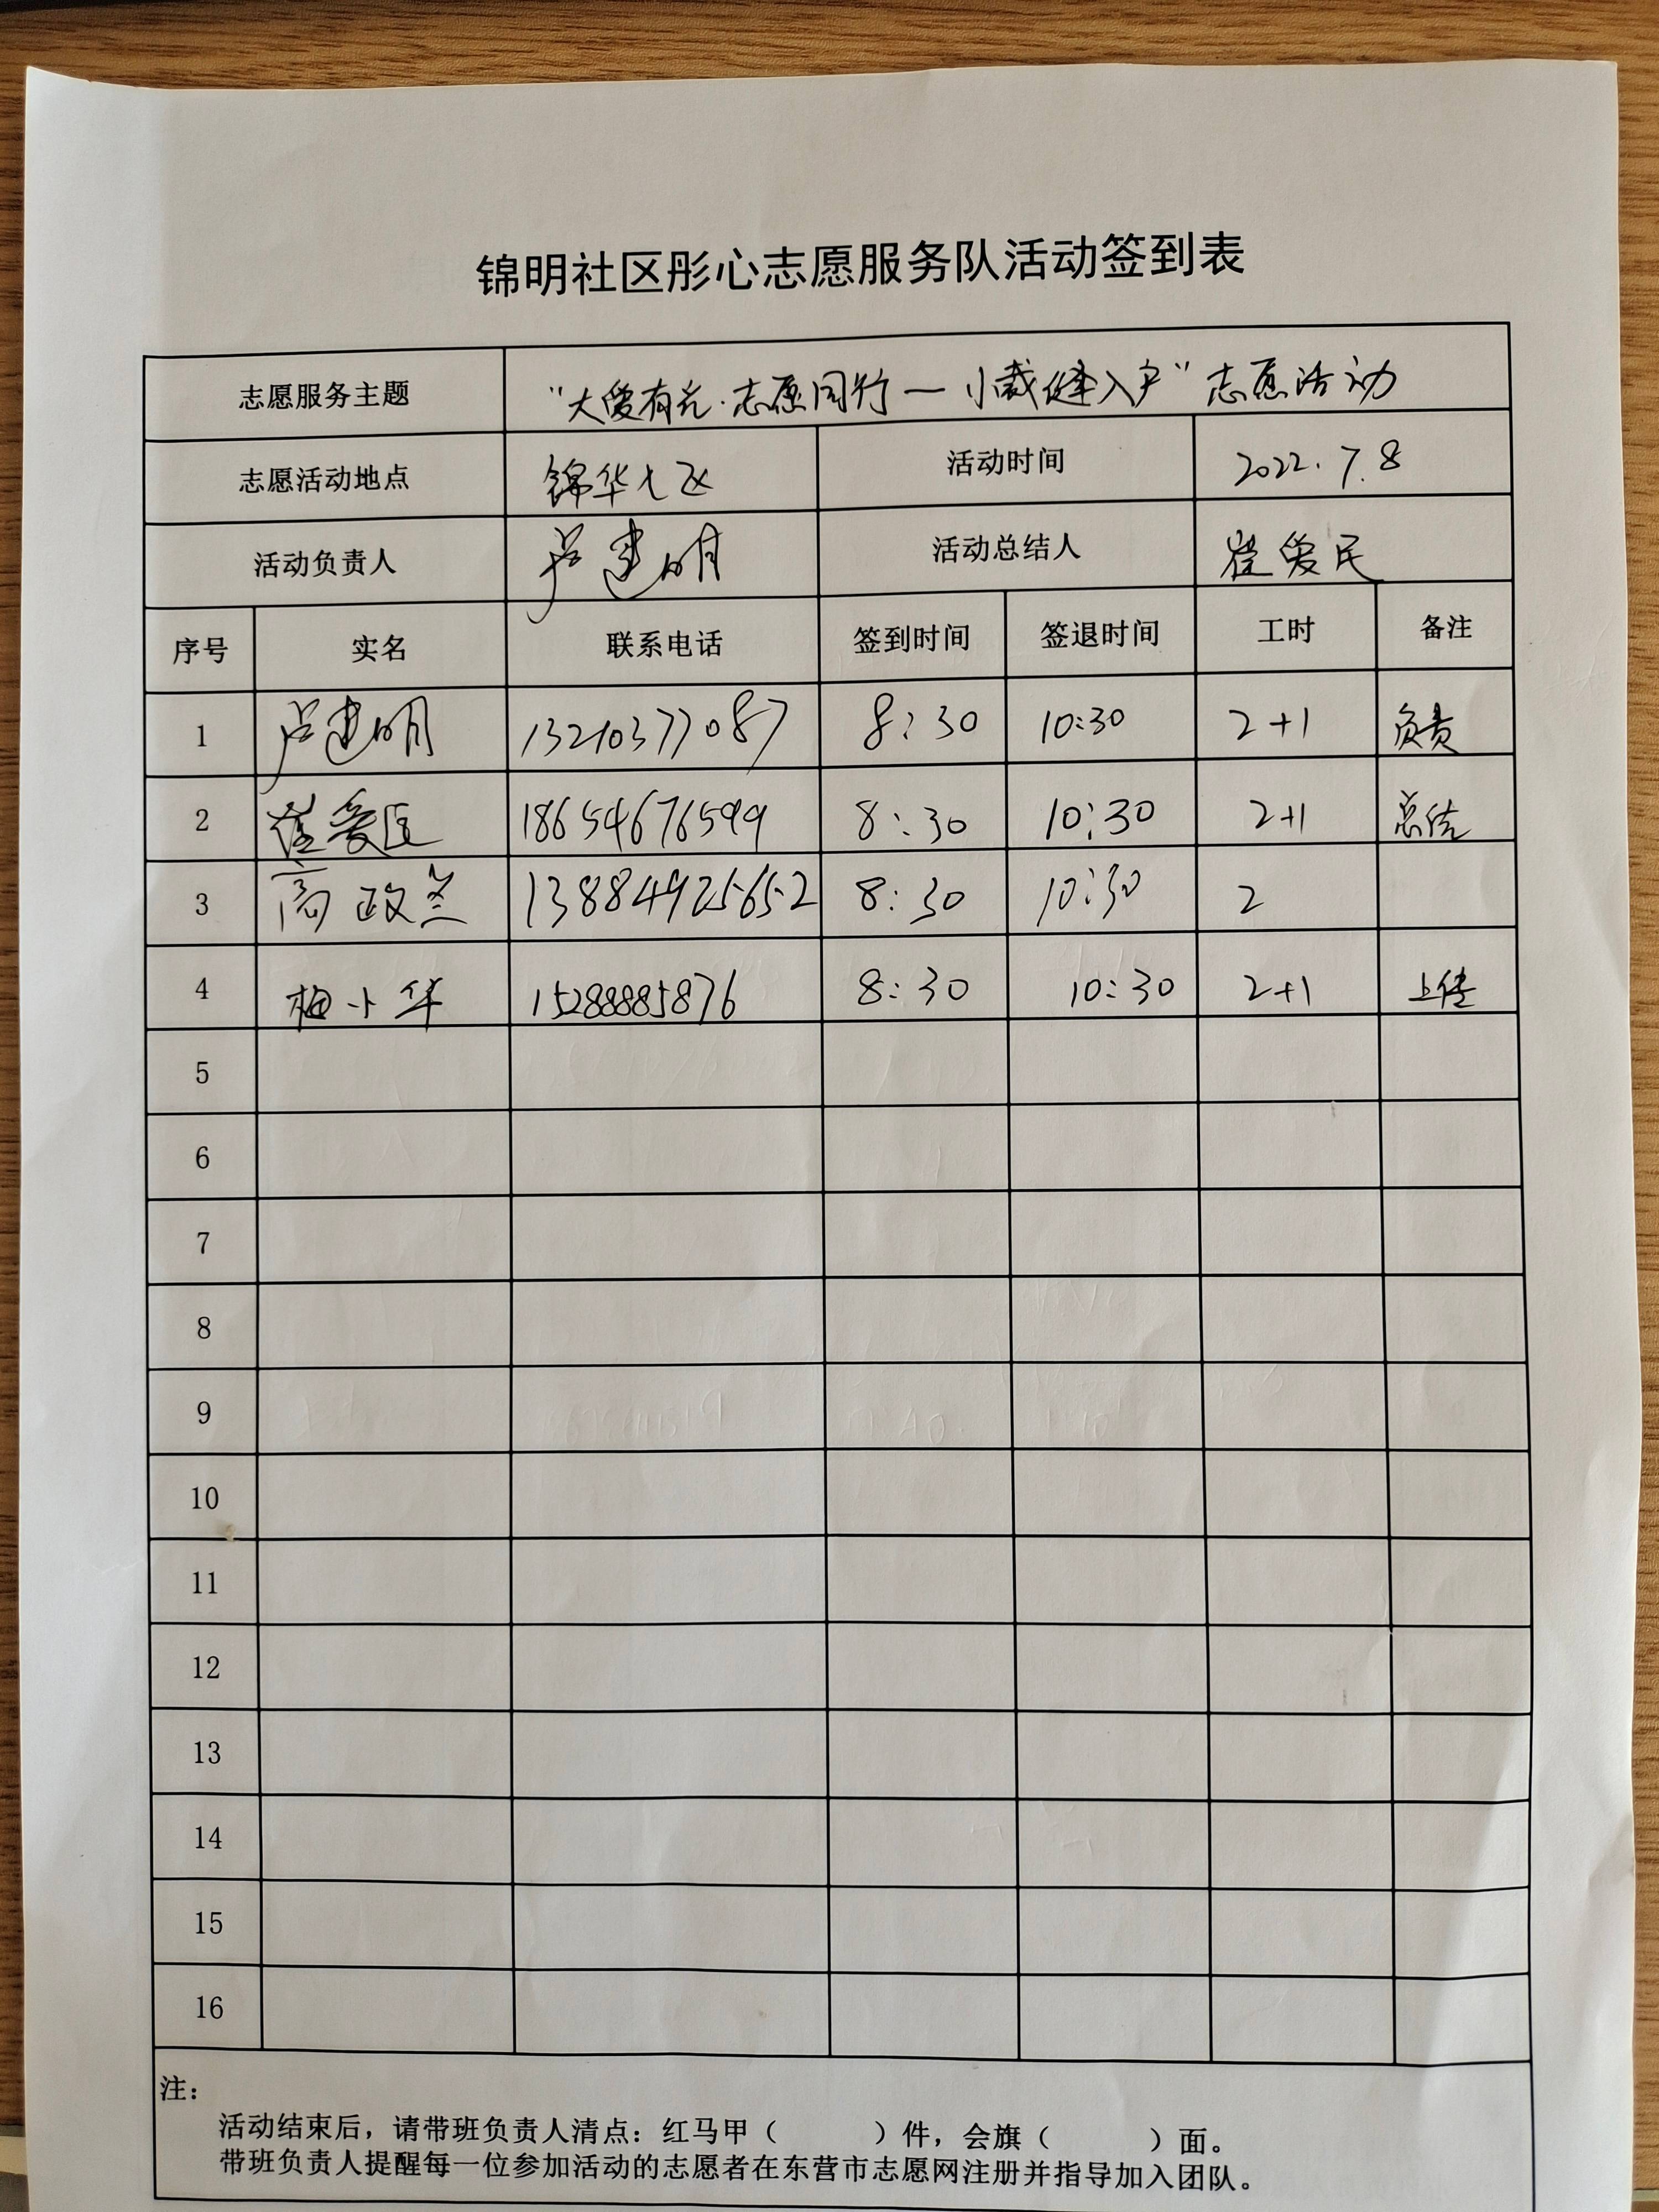 锦明社区彤心志愿服务队活动签到表
志愿服务主题 “大爱有光·志愿同行一小裁缝入户”志愿活动
志愿活动地点 锦华七区 活动时间 2022.7.8
活动负责人 卢建明 活动总结人 崔爱民
序号 实名 联系电话 签到时间 签退时间 工时 备注
1 卢建明 13210377087 8:30 10:30 2+1 负责
2 崔爱民 18654676599 8:30 10:30 2+1 总结
3 高政兰 13884925652 8:30 10:30 2
4 梅小华 15288885876 8:30 10:30 2+1 上传
5
6
7
8
9
10
11
12
13
14
15
16
注：
活动结束后，请带班负责人清点：红马甲（ ）件，会旗（ ）面。
带班负责人提醒每一位参加活动的志愿者在东营市志愿网注册并指导加入团队。